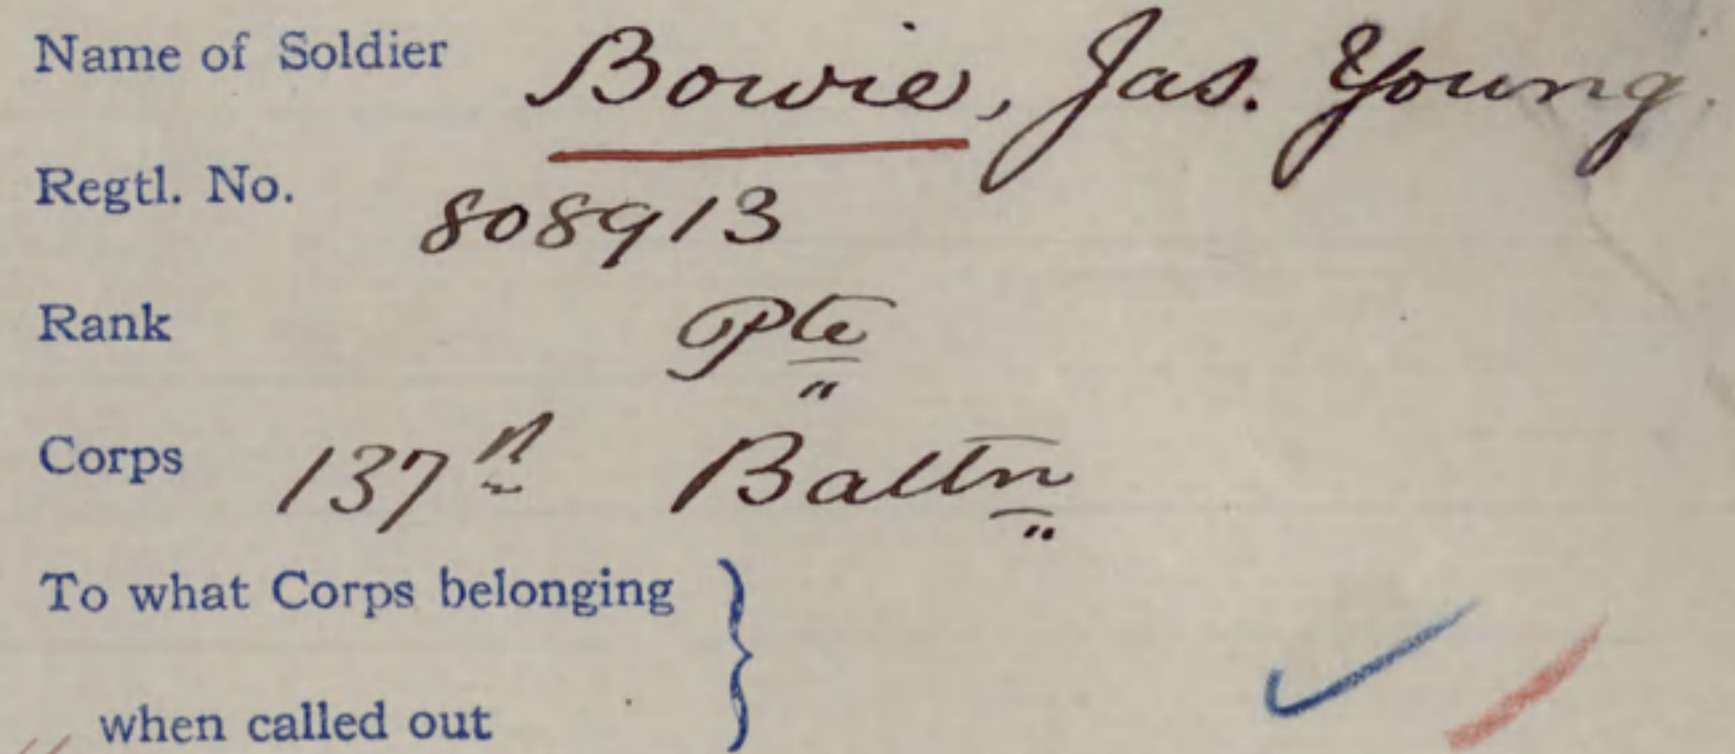 Name of Soldier Bowie, Jas. Young.
Regtl. No. 808913
Rank Pte
Corps 137th Battn
To what Corps belonging }
when called out